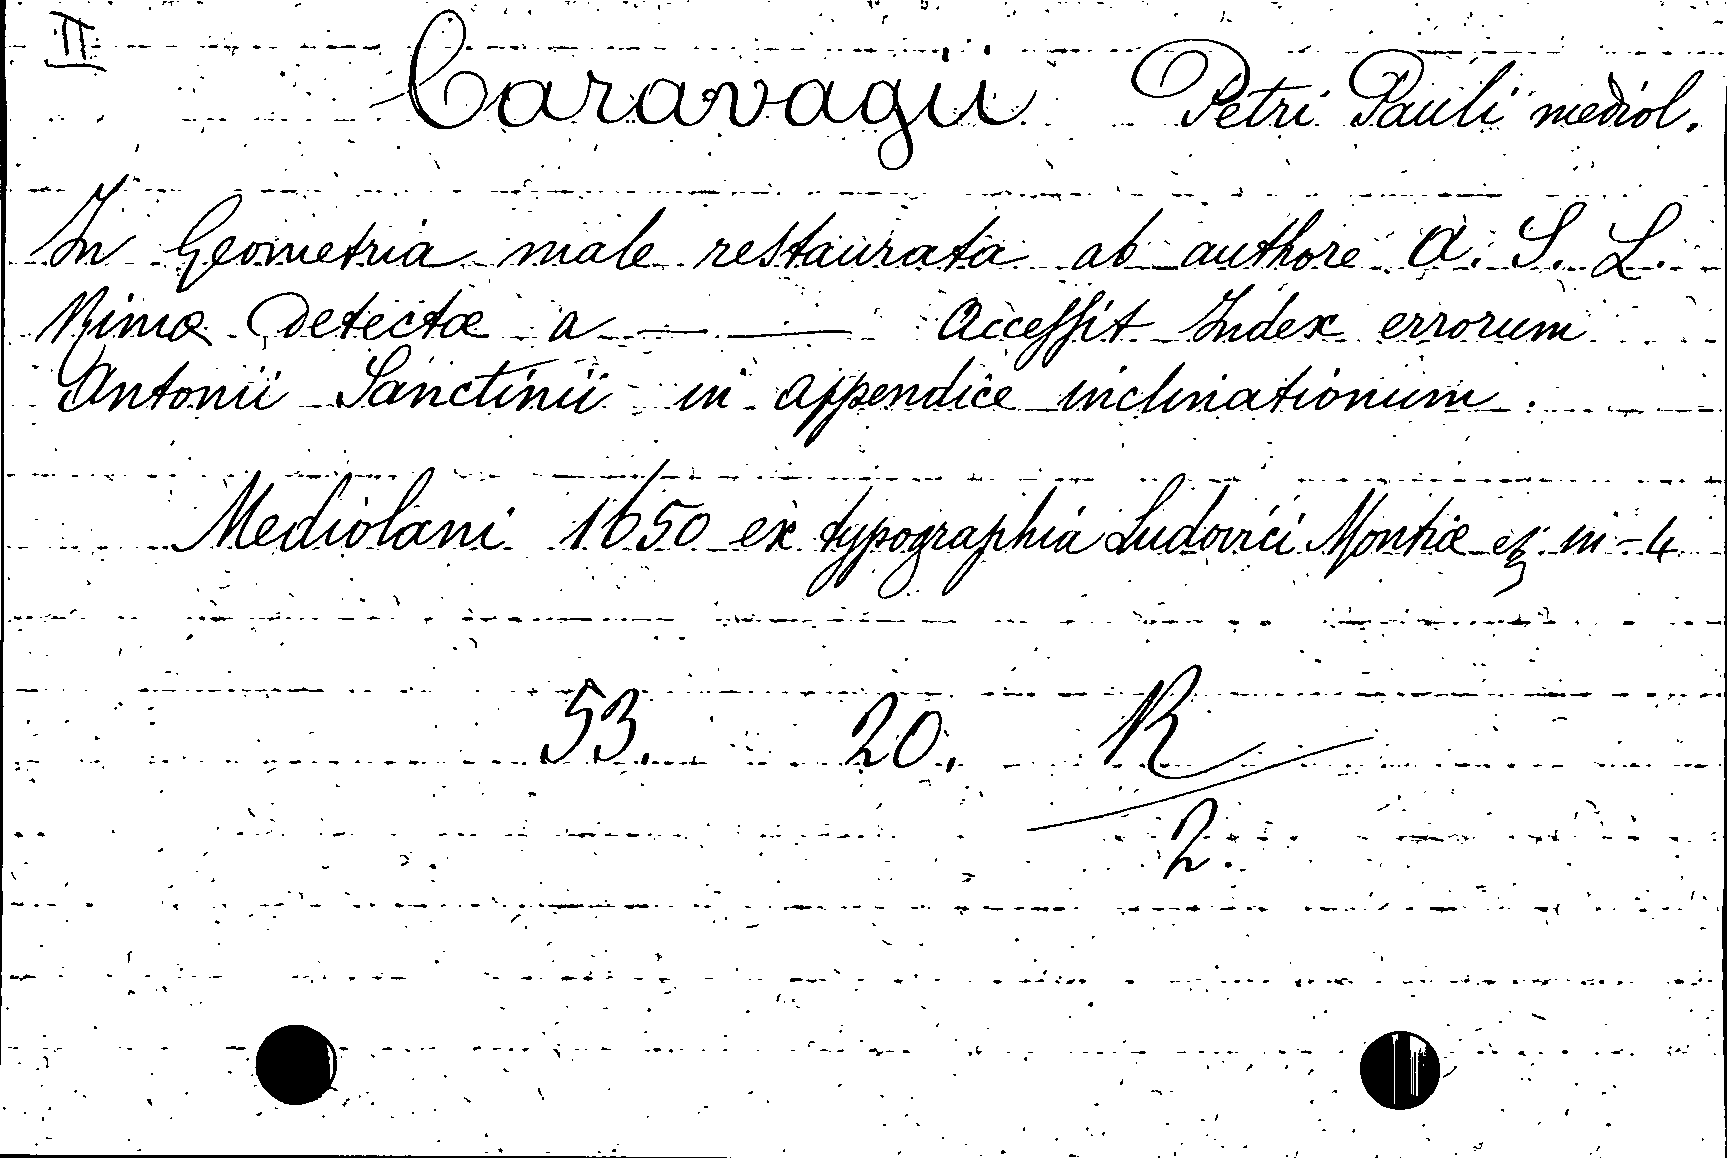 II
Caravagii Petri Pauli mediol.
In Geometria male restaurata ab authore A. S. L.
Rimæ Detectæ a — — Accessit Index errorum
Antonii Sanctinii in appendice inclinationum.
Mediolani 1650 ex typographia Ludovici Montiæ in-4
53. 20. R
2.